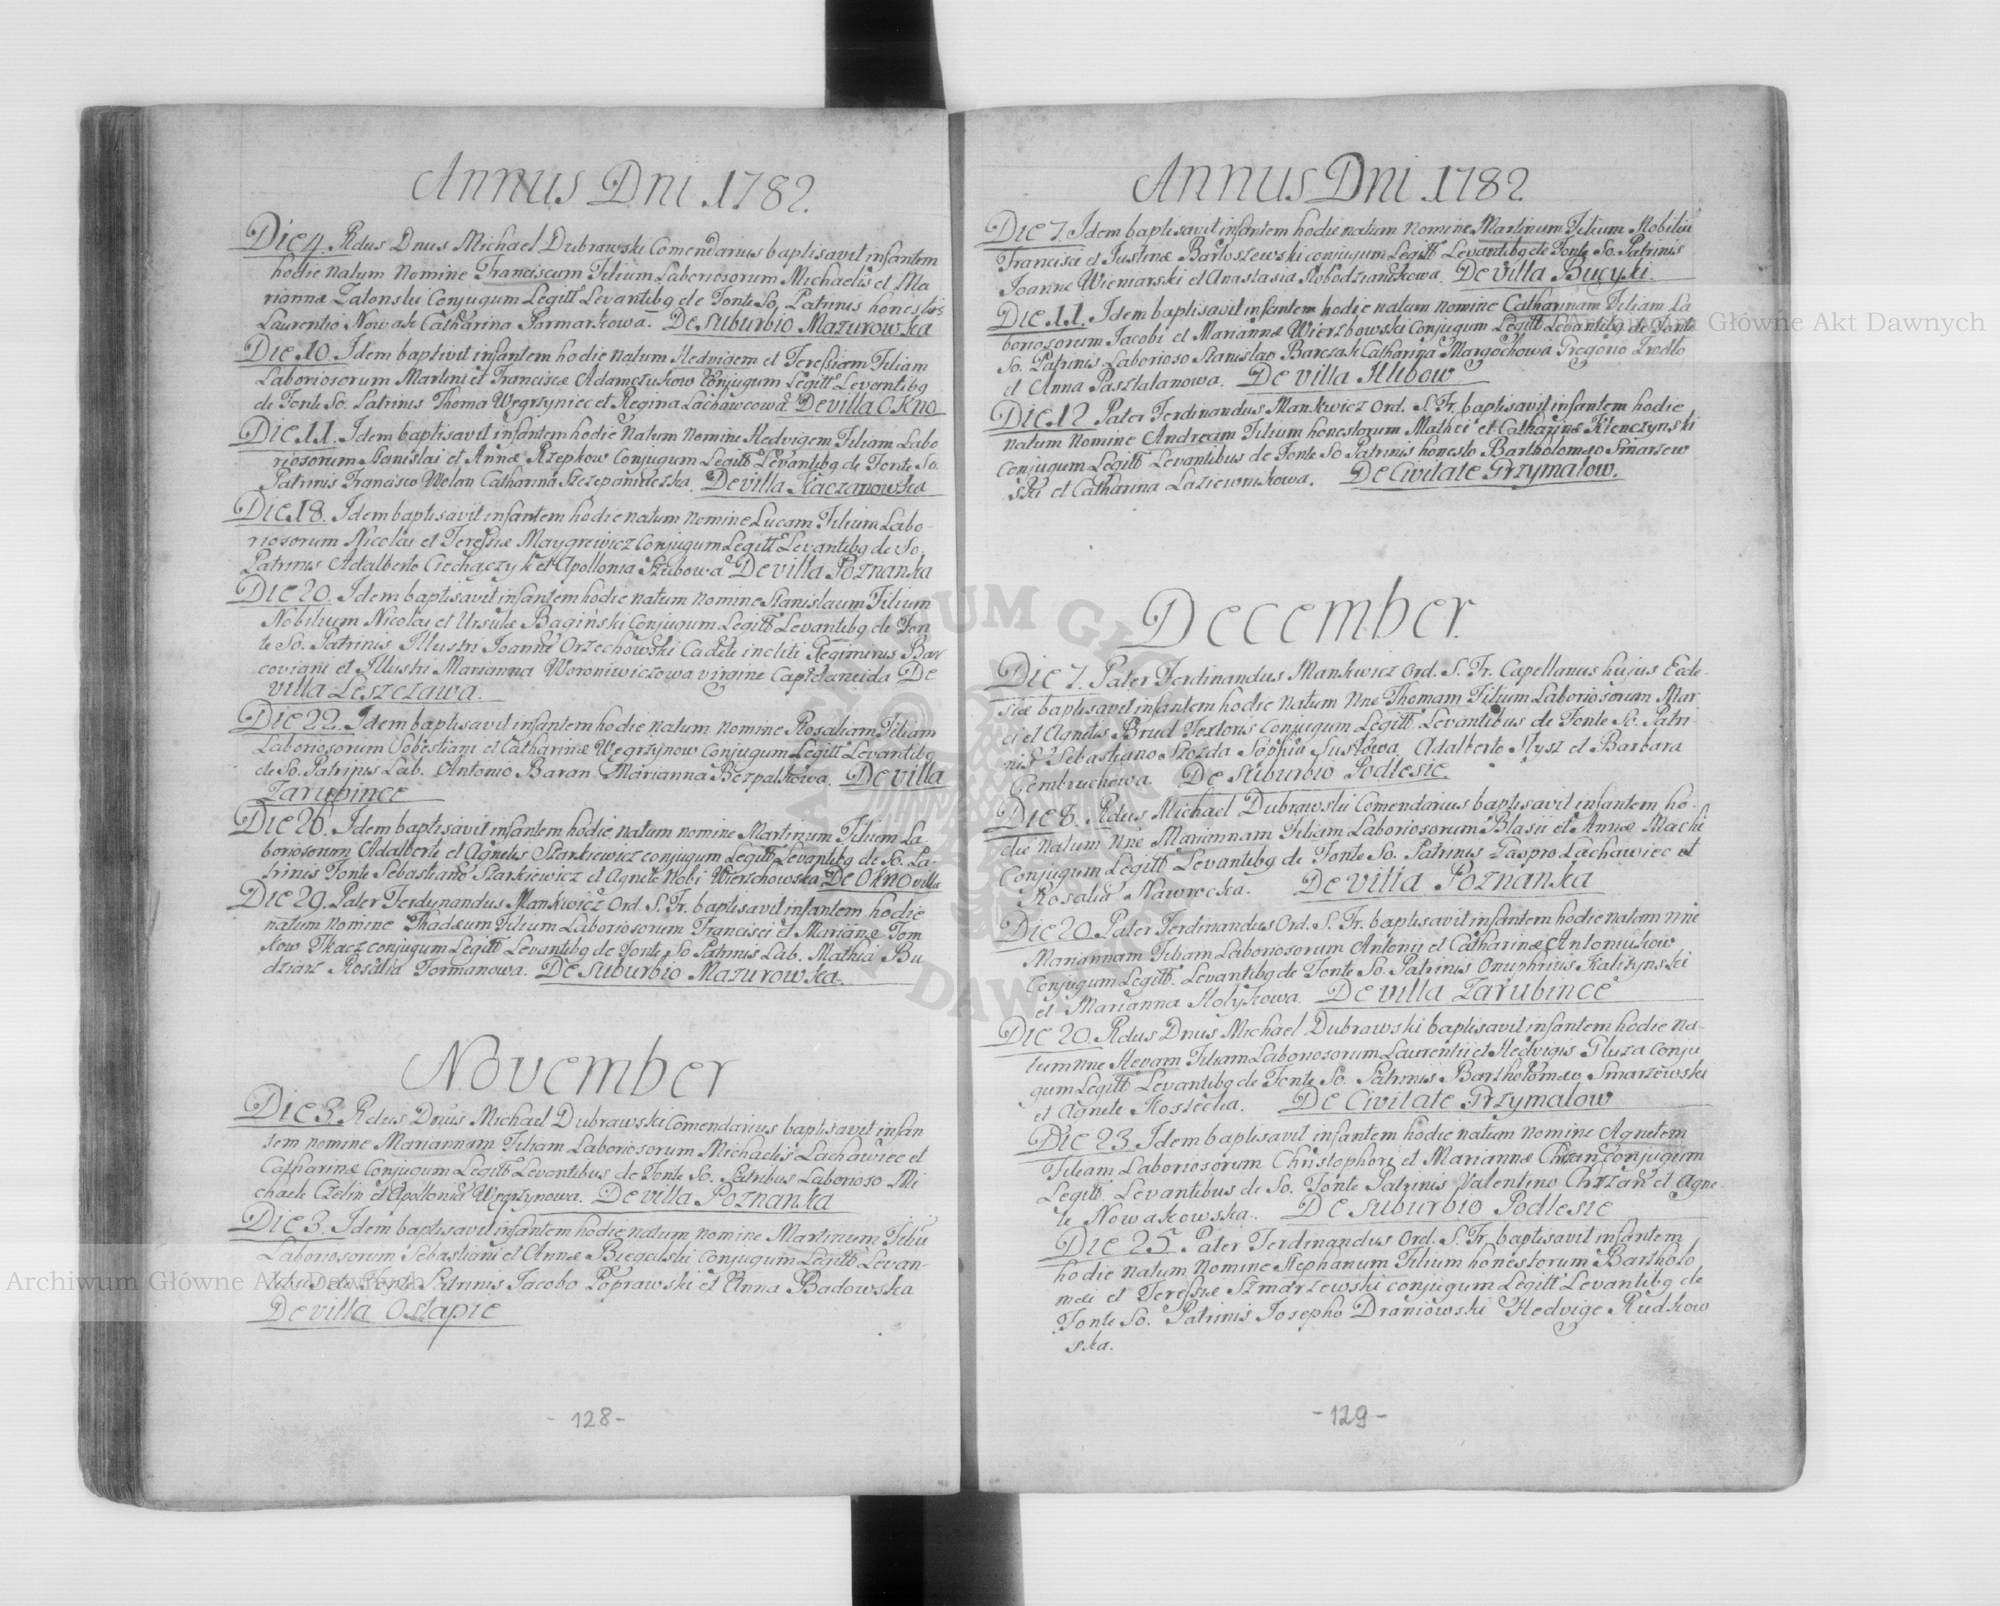 Annus Dni 1782.
Die 4. Rdus Dnus Michael Dubrawski Comendarius baptisavit infantem
hodie natum Nomine Franciscum Filium Laboriosorum Michaelis et Ma
riannæ Zalonski Conjugum Legitt Levantibq de Fonte So. Patrinis honestis
Laurentio Nowak Catharina Parmarkowa. De Suburbio Mazurowka
Die 10. Idem baptivit infantem hodie natum Hedvigem et Teressiam Filiam
Laboriosorum Martini et Franciscæ Adamczukow Conjugum Legitt Levantibq
de Fonte So. Patrinis Thoma Węgrzyniec et Regina Lachawcowa De villa OKno
Die 11. Idem baptisavit infantem hodie Natum Nomine Hedvigem Filiam Labo
riosorum Stanislai et Annæ Rzepkow Conjugum Legitt Levantibq de Fonte So.
Patrinis Francisco Wolan Catharina Szczepaniaczka. De villa Kaczanowka
Die 18. Idem baptisavit infantem hodie natum Nomine Lucam Filium Labo-
riosorum Nicolai et Teressiæ Maygrewicz Conjugum Legitt Levantibq de So.
Patrinis Adalberto Ciechączyk et Apollonia Szubowa De villa Poznanka
Die 20. Idem baptisavit infantem hodie natum Nomine Stanislaum Filium
Nobilium Nicolai et Ursulæ Bagiński Conjugum Legitt Levantibq de Fon
te So. Patrinis Illustri Joanne Orzechowski Cadete inclite Regiminis Bar
coviani et Illustri Marianna Woroniwiczowa virgine Capitaneida De
villa Leszczawa.
Die 22. Idem baptisavit infantem hodie natum Nomine Rosaliam Filiam
Laboriosorum Sobestiani et Catharinæ Węgrzynow Conjugum Legitt Levantibq
de So. Patrinis Lab. Antonio Baran Marianna Bezpalkowa. De villa
Zarubince
Die 26. Idem baptisavit infantem hodie natum nomine Martinum Filium La-
boriosorum Adalberti et Agnetis Szarkiewicz conjugum Legitt Levantibq de So. Pa-
trinis Fonte Sebastiano Szarkiewicz et Agnete Nobi Wierzchowska De OKno villa
Die 29. Pater Ferdynandus Mankwicz Ord. S. Fr. baptisavit infantem hodie
natum nomine Thadæum Filium Laboriosorum Francisci et Mariannæ Tom
kow Tkacz conjugum Legitt Levantibq de Fonte So Patrinis Lab. Mathia Bu
dziarz Rosalia Formanowa. De Suburbio Mazurowka.
November
Die 3. Rdus Dnus Michael Dubrawski Comendarius baptisavit infan
tem nomine Mariannam Filiam Laboriosorum Michaelis Lachawiec et
Catharinæ Conjugum Legitt Levantibus de Fonte So. Patribus Laborioso Mi
chaele Czelin et Apollonia Węgrzynowa. De villa Poznanka
Die 3. Idem baptisavit infantem hodie natum nomine Martinum Filiū
Laboriosorum Sebastiani et Annæ Biegalski Conjugum Legitt Levan-
tibus de Fonte Patrinis Jacobo Poprawski et Anna Badowska
De villa Ostapie
-128-
Annus Dni 1782.
Die 7. Idem baptisavit infantem hodie natum Nomine Martinum Filium Nobiliū
Francisci et Justinæ Bartoszewski conjugum Legitt Levantibq de Fonte So. Patrinis
Joanne Wieniarski et Anastasia Slobodzianikowa. De villa Bucyki.
Die 11. Idem baptisavit infantem hodie natum nomine Catharinam Filiam La
boriosorum Jacobi et Mariannæ Wierzbowski Conjugum Legitt Levantibq de Fonte
So. Patrinis Laborioso Stanislao Barczak Catharina Margochowa Gregorio
et Anna Pasztalanowa. De villa Hlibow
Die 12 Pater Ferdinandus Mankwicz Ord. S. Fr. baptisavit infantem hodie
natum Nomine Andream Filium honestorum Mathei et Catharinæ Klenczynski
Conjugum Legitt Levantibus de Fonte So Patrinis honesto Bartholomæo Smarzew
ski et Catharina Laziewnikowa. De Civitate Grzymałow.
December.
Die 7. Pater Ferdinandus Mankwicz Ord. S. Fr. Capellanus hujus Eccle-
siæ baptisavit infantem hodie natum Nne Thomam Filium Laboriosorum Mar
ci et Agnetis Brud Textoris Conjugum Legitt. Levantibus de Fonte So. Patri-
nis Sebastiano Szozda Sophia Sustowa, Adalberto Slysz et Barbara
Gembruchowa. De Suburbio Podlesie.
Die 8. Rdus Michael Dubrawski Comendarius baptisavit infantem ho-
die natum Nne Mariannam Filiam Laboriosorum Blasii et Annæ Machi
Conjugum Legitt Levantibq de Fonte So. Patrinis Gaspro Lachawiec et
Rosalia Nawrocka. De Villa Poznanka
Die 20. Pater Ferdinandus Ord. S. Fr. baptisavit infantem hodie natam Nne
Mariannam Filiam Laboriosorum Antonij et Catharinæ Antoniukow
Conjugum Legitt. Levantibq de Fonte So. Patrinis Onuphrius Kalizynski
et Marianna Holykowa. De villa Zarubince
Die 20. Rdus Dnus Michael Dubrawski baptisavit infantem hodie na-
tum Nne Hevam Filiam Laboriosorum Laurentii et Hedvigis Gluza Conju
gum Legitt Levantibq de Fonte So. Patrinis Bartholomæo Smarzewski
et Agnete Koszecka. De Civitate Grzymałow
Die 23. Idem baptisavit infantem hodie natum nomine Agnetem
Filiam Laboriosorum Christophori et Mariannæ Chrzan Conjugum
Legitt. Levantibus de So. Fonte Patrinis Valentino Chrzan et Agne-
te Nowakowska. De Suburbio Podlesie
Die 25. Pater Ferdinandus Ord. S. Fr. baptisavit infantem
hodie natum Nomine Stephanum Filium honestorum Bartholo
mæi et Teressiæ Szmarzewski conjugum Legitt Levantibq de
Fonte So. Patrinis Josepho Draniowski Hedvige Rudkow
ska.
-129-
Archiwum Główne Akt Dawnych
Archiwum Główne Akt Dawnych
ARCHIWUM GŁÓWNE AKT DAWNYCH